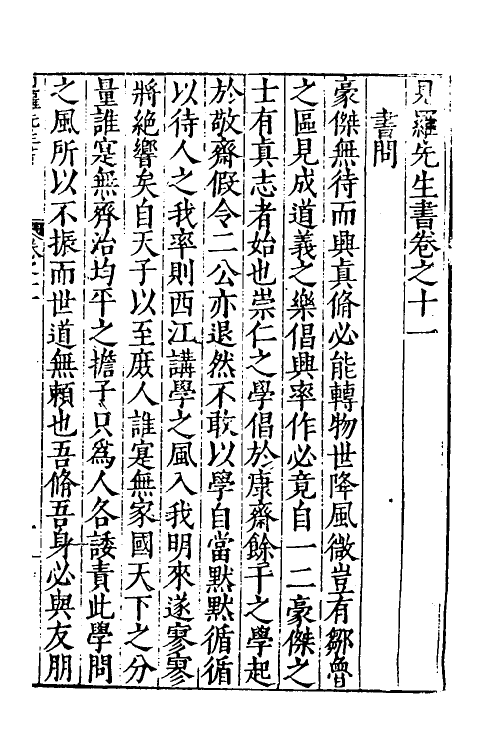 見羅先生書卷之十一
書問
豪傑無待而興真脩必能轉物世降風微豈有鄒魯
之區見成道義之樂倡興率作必竟自一二豪傑之
士有真志者始也崇仁之學倡於康齋餘干之學起
於敬齋假令二公亦退然不敢以學自當默默循循
以待人之我率則西江講學之風入我明來遂寥寥
將絕響矣自天子以至庶人誰寔無家國天下之分
量誰寔無齊治均平之擔子只為人各諉責此學問
之風所以不振而世道無賴也吾脩吾身必與友朋